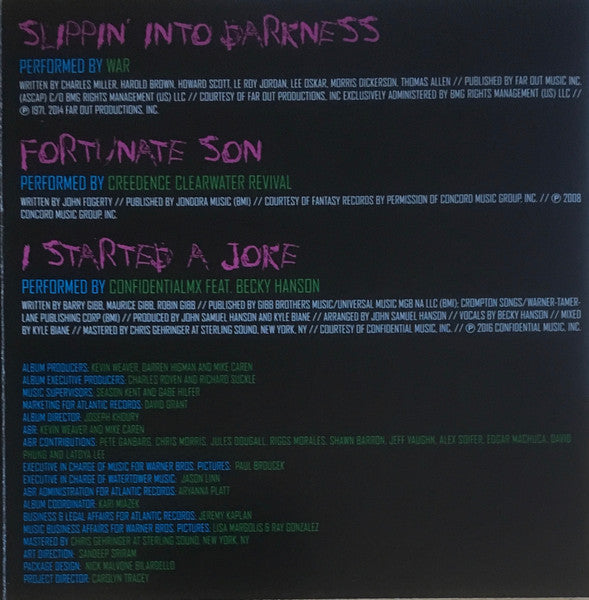 SLIPPIN' INTO DARKNESS
PERFORMED BY WAR
WRITTEN BY CHARLES MILLER, HAROLD BROWN, HOWARD SCOTT, LE ROY JORDAN, LEE OSKAR, MORRIS DICKERSON, THOMAS ALLEN // PUBLISHED BY FAR OUT MUSIC INC.
(ASCAP) C/O BMG RIGHTS MANAGEMENT (US) LLC // COURTESY OF FAR OUT PRODUCTIONS, INC EXCLUSIVELY ADMINISTERED BY BMG RIGHTS MANAGEMENT (US) LLC //
℗ 1971, 2014 FAR OUT PRODUCTIONS, INC.
FORTUNATE SON
PERFORMED BY CREEDENCE CLEARWATER REVIVAL
WRITTEN BY JOHN FOGERTY // PUBLISHED BY JONDORA MUSIC (BMI) // COURTESY OF FANTASY RECORDS BY PERMISSION OF CONCORD MUSIC GROUP, INC. // ℗ 2008
CONCORD MUSIC GROUP, INC.
I STARTED A JOKE
PERFORMED BY CONFIDENTIALMX FEAT. BECKY HANSON
WRITTEN BY BARRY GIBB, MAURICE GIBB, ROBIN GIBB // PUBLISHED BY GIBB BROTHERS MUSIC/UNIVERSAL MUSIC MGB NA LLC (BMI); CROMPTON SONGS/WARNER-TAMER-
LANE PUBLISHING CORP (BMI) // PRODUCED BY JOHN SAMUEL HANSON AND KYLE BIANE // ARRANGED BY JOHN SAMUEL HANSON // VOCALS BY BECKY HANSON // MIXED
BY KYLE BIANE // MASTERED BY CHRIS GEHRINGER AT STERLING SOUND, NEW YORK, NY // COURTESY OF CONFIDENTIAL MUSIC, INC. // ℗ 2016 CONFIDENTIAL MUSIC, INC.
ALBUM PRODUCERS: KEVIN WEAVER, DARREN HIGMAN AND MIKE CAREN
ALBUM EXECUTIVE PRODUCERS: CHARLES ROVEN AND RICHARD SUCKLE
MUSIC SUPERVISORS: SEASON KENT AND GABE HILFER
MARKETING FOR ATLANTIC RECORDS: DAVID GRANT
ALBUM DIRECTOR: JOSEPH KHOURY
A&R: KEVIN WEAVER AND MIKE CAREN
A&R CONTRIBUTIONS: PETE GANBARG, CHRIS MORRIS, JULES DOUGALL, RIGGS MORALES, SHAWN BARRON, JEFF VAUGHN, ALEX SOIFER, EDGAR MACHUCA, DAVID
PHUNG AND LATOYA LEE
EXECUTIVE IN CHARGE OF MUSIC FOR WARNER BROS. PICTURES: PAUL BROUCEK
EXECUTIVE IN CHARGE OF WATERTOWER MUSIC: JASON LINN
A&R ADMINISTRATION FOR ATLANTIC RECORDS: ARYANNA PLATT
ALBUM COORDINATOR: KARI MIAZEK
BUSINESS & LEGAL AFFAIRS FOR ATLANTIC RECORDS: JEREMY KAPLAN
MUSIC BUSINESS AFFAIRS FOR WARNER BROS. PICTURES: LISA MARGOLIS & RAY GONZALEZ
MASTERED BY CHRIS GEHRINGER AT STERLING SOUND, NEW YORK, NY
ART DIRECTION: SANDEEP SRIRAM
PACKAGE DESIGN: NICK MALVONE BILARDELLO
PROJECT DIRECTOR: CAROLYN TRACEY